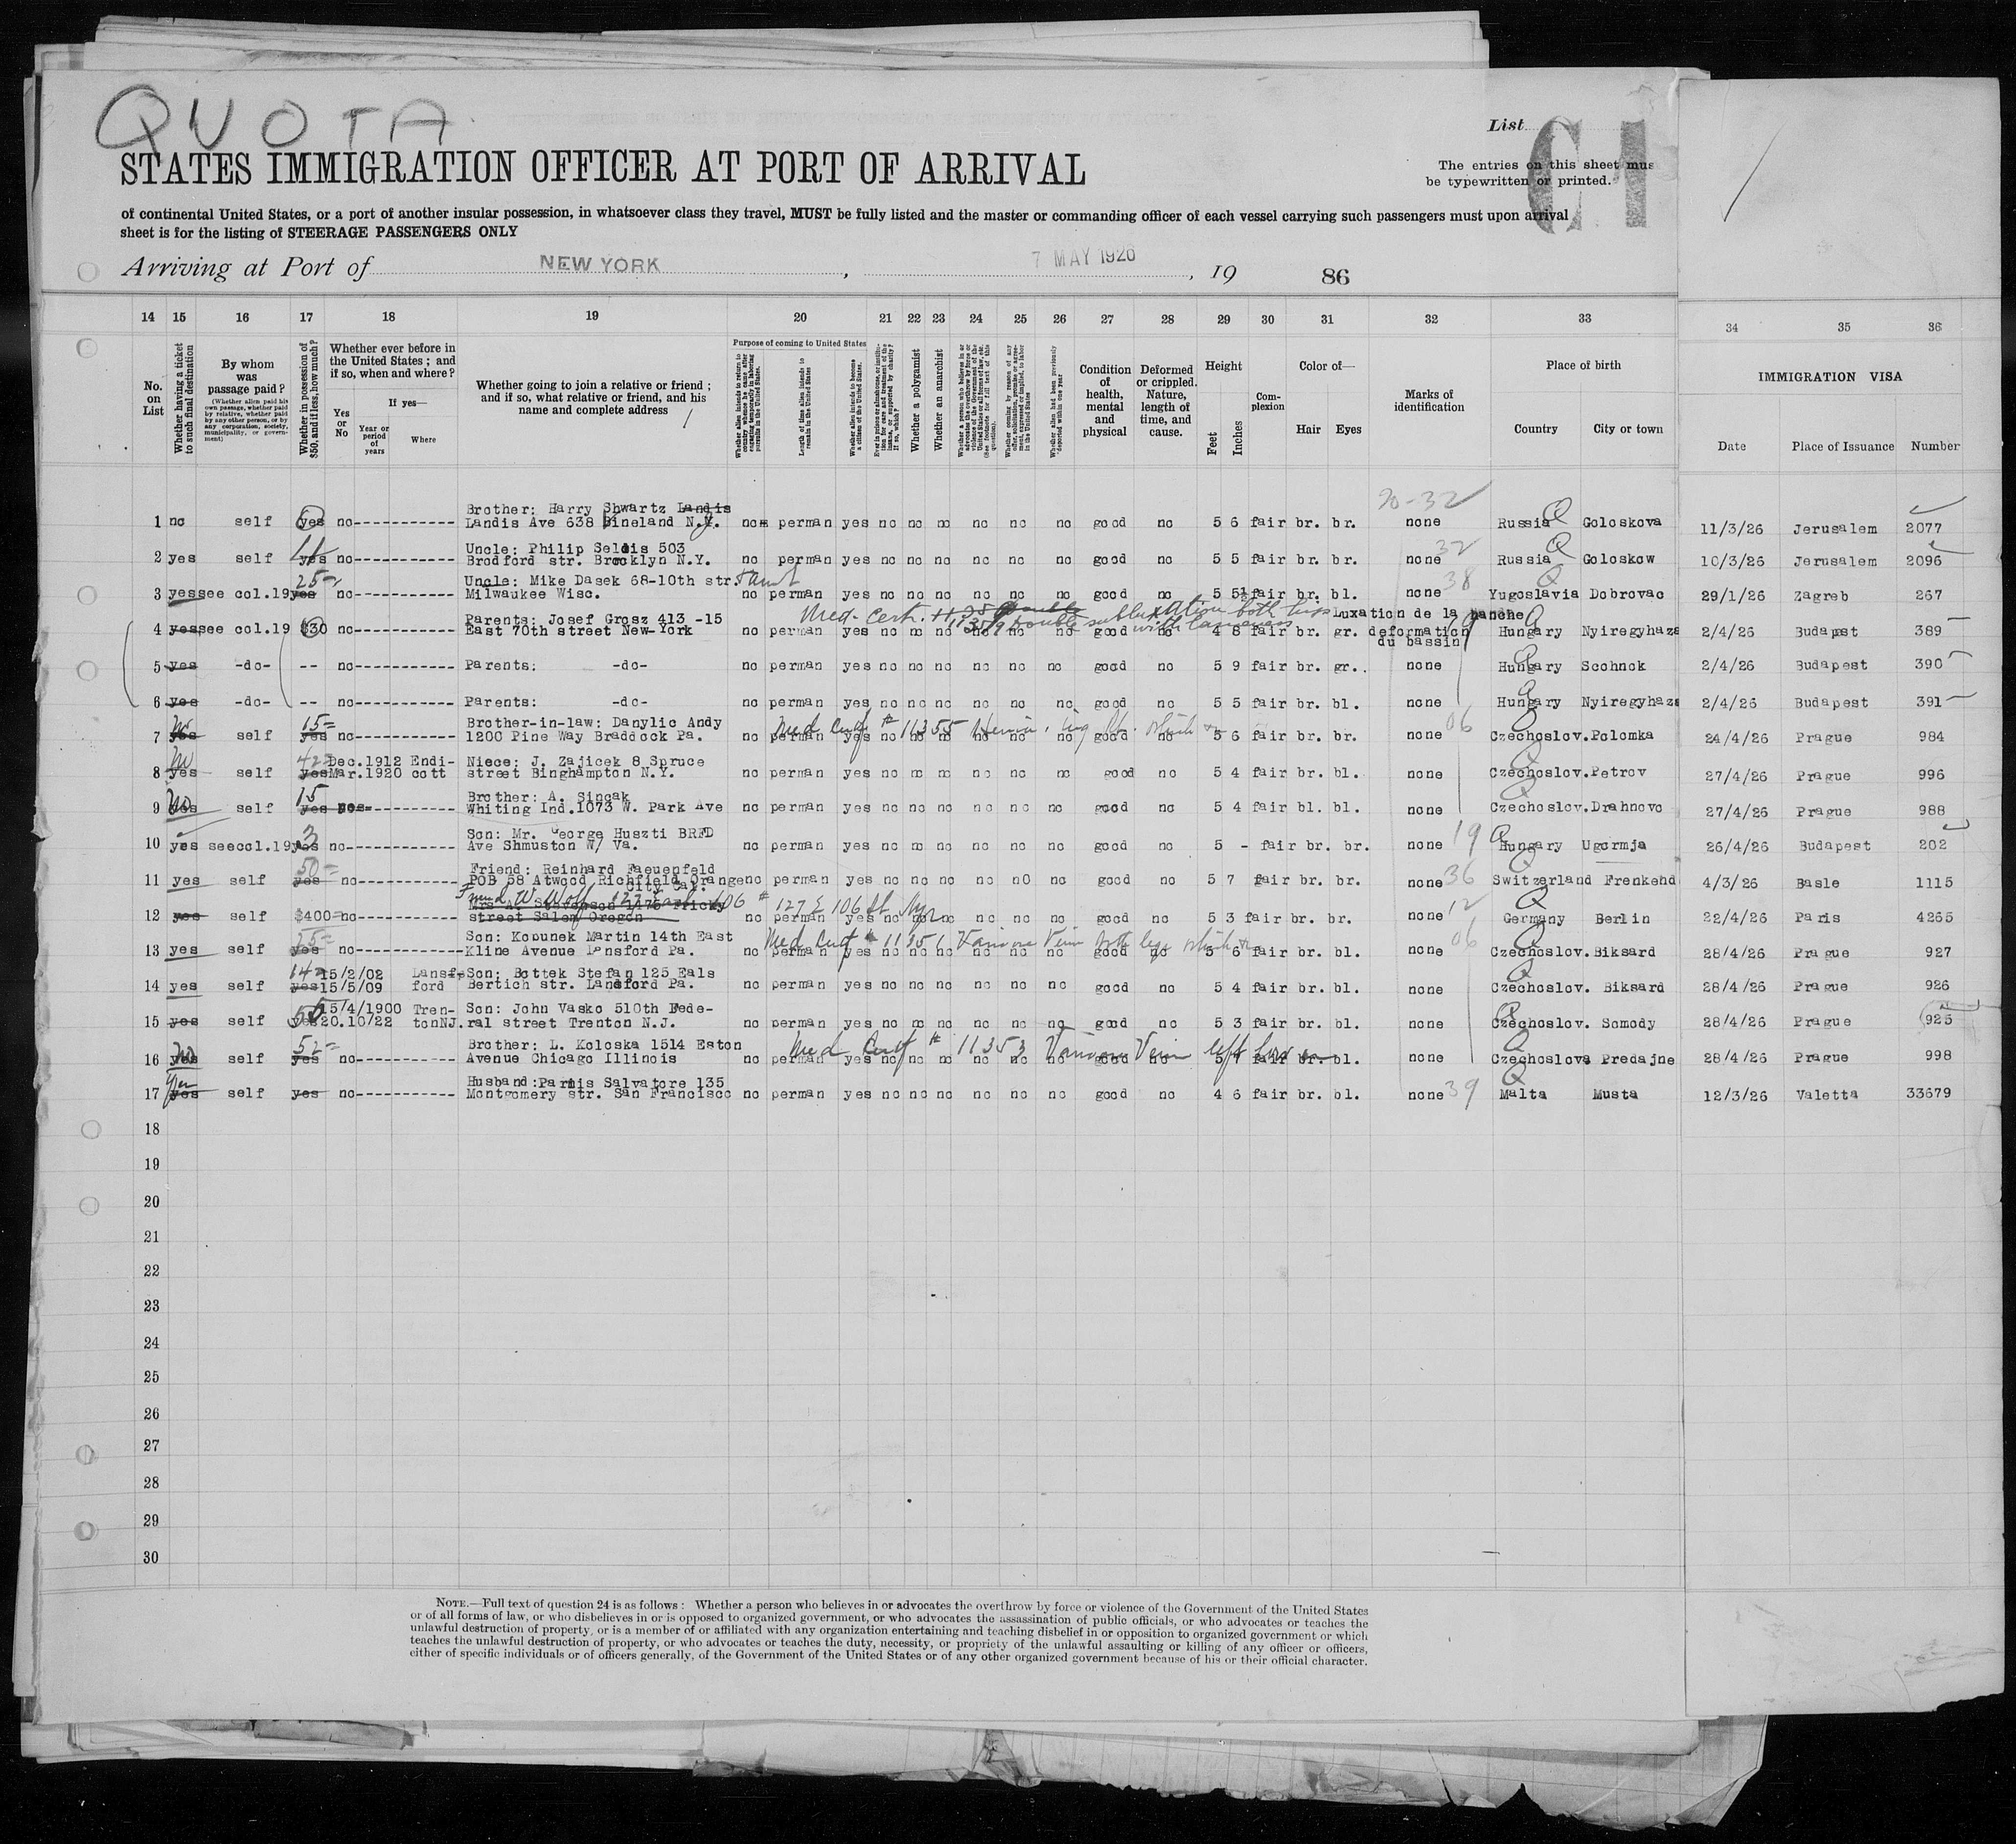 QUOTA
List
C1
STATES IMMIGRATION OFFICER AT PORT OF ARRIVAL
The entries on this sheet mus
be typewritten or printed.
of continental United States, or a port of another insular possession, in whatsoever class they travel, MUST be fully listed and the master or commanding officer of each vessel carrying such passengers must upon arrival
sheet is for the listing of STEERAGE PASSENGERS ONLY
Arriving at Port of NEW YORK, 7 MAY 1926, 19 86
14 15 16 17 18 19 20 21 22 23 24 25 26 27 28 29 30 31 32 33 34 35 36
No. on List
Whether having a ticket to such final destination
By whom was passage paid?
(Whether alien paid his own passage, whether paid by relative, whether paid by any other person, or by any corporation, society, municipality, or government)
Whether in possession of $50, and if less, how much?
Whether ever before in the United States; and if so, when and where?
Yes or No
If yes—
Year or period of years
Where
Whether going to join a relative or friend; and if so, what relative or friend, and his name and complete address
Purpose of coming to United States
Whether alien intends to return to country whence he came after engaging temporarily in laboring pursuits in the United States.
Length of time alien intends to remain in the United States
Whether alien intends to become a citizen of the United States.
Ever in prison or almshouse, or institution for care and treatment of the insane, or supported by charity? If so, which?
Whether a polygamist
Whether an anarchist
Whether a person who believes in or advocates the overthrow by force or violence of the Government of the United States or all forms of law, etc. (See footnote for full text of this question).
Whether coming by reason of any offer, solicitation, promise or agreement, expressed or implied, to labor in the United States
Whether alien had been previously deported within one year
Condition of health, mental and physical
Deformed or crippled. Nature, length of time, and cause.
Height
Feet
Inches
Complexion
Color of—
Hair Eyes
Marks of identification
Place of birth
Country City or town
IMMIGRATION VISA
Date Place of Issuance Number
20-32
Brother: Harry Shwartz Landis
1 no self yes no------------ Landis Ave 638 Vineland N.J. no perman yes no no no no no no good no 5 6 fair br. br. none Russia Q Goloskova 11/3/26 Jerusalem 2077
Uncle: Philip Seldis 503 32
2 yes self yes no------------ Brodford str. Brooklyn N.Y. no perman yes no no no no no no good no 5 5 fair br. br. none Russia Q Goloskow 10/3/26 Jerusalem 2096
25- Uncle: Mike Dasek 68-10th str. 38
3 yes see col.19 yes no------------ Milwaukee Wisc. no perman yes no no no no no no good no 5 5½ fair br. bl. none Yugoslavia Q Dobrovac 29/1/26 Zagreb 267
Med. Cert. # 11359 Double subluxation both hips Luxation de la hanche
Parents: Josef Grosz 413 -15
4 yes see col.19 $30 no------------ East 70th street New-York no perman yes no no no no no no good no 4 8 fair br. gr. deformation Hungary Q Nyiregyhaza 2/4/26 Budapst 389
du bassin
5 yes -do- -- no------------ Parents: -do- no perman yes no no no no no no good no 5 9 fair br. gr. none Hungary Q Scohnok 2/4/26 Budapest 390
6 yes -do- -- no------------ Parents: -do- no perman yes no no no no no no good no 5 5 fair br. bl. none Hungary Q Nyiregyhaza 2/4/26 Budapest 391
No 15= Brother-in-law: Danylic Andy Med Cert # 11355 Hernia 06
7 yes self yes no------------ 1200 Pine Way Braddock Pa. no perman yes no no no no no no good no 5 6 fair br. br. none Czechoslov. Q Polomka 24/4/26 Prague 984
No 42= Dec.1912 Endi- Niece: J. Zajicek 8 Spruce
8 yes self yes Mar.1920 cott street Binghampton N.Y. no perman yes no no no no no no good no 5 4 fair br. bl. none Czechoslov. Q Petrov 27/4/26 Prague 996
No 15 Brother: A. Sincak
9 yes self yes yes------------ Whiting Ind.1073 W. Park Ave no perman yes no no no no no no good no 5 4 fair bl. bl. none Czechoslov. Q Drahnovo 27/4/26 Prague 988
3 Son: Mr. George Huszti BRFD 19
10 yes see col.19 yes no------------ Ave Shmuston W/ Va. no perman yes no no no no no no good no 5 - fair br. br. none Hungary Q Ugormja 26/4/26 Budapest 202
50= Friend: Reinhard Faeuenfeld 36
11 yes self yes no------------ POB 58 Atwood Richfield Orange no perman yes no no no no nO no good no 5 7 fair br. br. none Switzerland Q Frenkend 4/3/26 Basle 1115
City Cal.
Friend W. Wolf 127 East 106 # 127 E 106 St. Nyc 12
Mrs A. Stevenson 1175 Fricky
12 yes self $400= no------------ street Salem Oregon no perman yes no no no no no no good no 5 3 fair br. br. none Germany Q Berlin 22/4/26 Paris 4265
55= Son: Kobunek Martin 14th East Med Cert # 11351 Varicose Vein both legs 06
13 yes self yes no------------ Kline Avenue Lansford Pa. no perman yes no no no no no no good no 5 6 fair br. bl. none Czechoslov. Q Biksard 28/4/26 Prague 927
14= 15/2/02 Lansf- Son: Bottek Stefan 125 Eals
14 yes self yes 15/5/09 ford Bertich str. Landford Pa. no perman yes no no no no no no good no 5 4 fair br. bl. none Czechoslov. Q Biksard 28/4/26 Prague 926
50 15/4/1900 Tren- Son: John Vasko 510th Fede-
15 yes self yes 20.10/22 tonNJ. ral street Trenton N.J. no perman yes no no no no no no good no 5 3 fair br. bl. none Czechoslov. Q Somody 28/4/26 Prague 925
No 52= Brother: L. Koloska 1514 Eston Med Cert # 11353 Varicose Vein left leg
16 yes self yes no------------ Avenue Chicago Illinois no perman yes no no no no no no good no 5 7 fair br. bl. none Czechoslova Q Predajne 28/4/26 Prague 998
yes Husband: Parnis Salvatore 135 39
17 yes self yes no------------ Montgomery str. San Francisco no perman yes no no no no no no good no 4 6 fair br. bl. none Malta Q Musta 12/3/26 Valetta 33679
18
19
20
21
22
23
24
25
26
27
28
29
30
NOTE.—Full text of question 24 is as follows: Whether a person who believes in or advocates the overthrow by force or violence of the Government of the United States
or of all forms of law, or who disbelieves in or is opposed to organized government, or who advocates the assassination of public officials, or who advocates or teaches the
unlawful destruction of property, or is a member of or affiliated with any organization entertaining and teaching disbelief in or opposition to organized government or which
teaches the unlawful destruction of property, or who advocates or teaches the duty, necessity, or propriety of the unlawful assaulting or killing of any officer or officers,
either of specific individuals or of officers generally, of the Government of the United States or of any other organized government because of his or their official character.